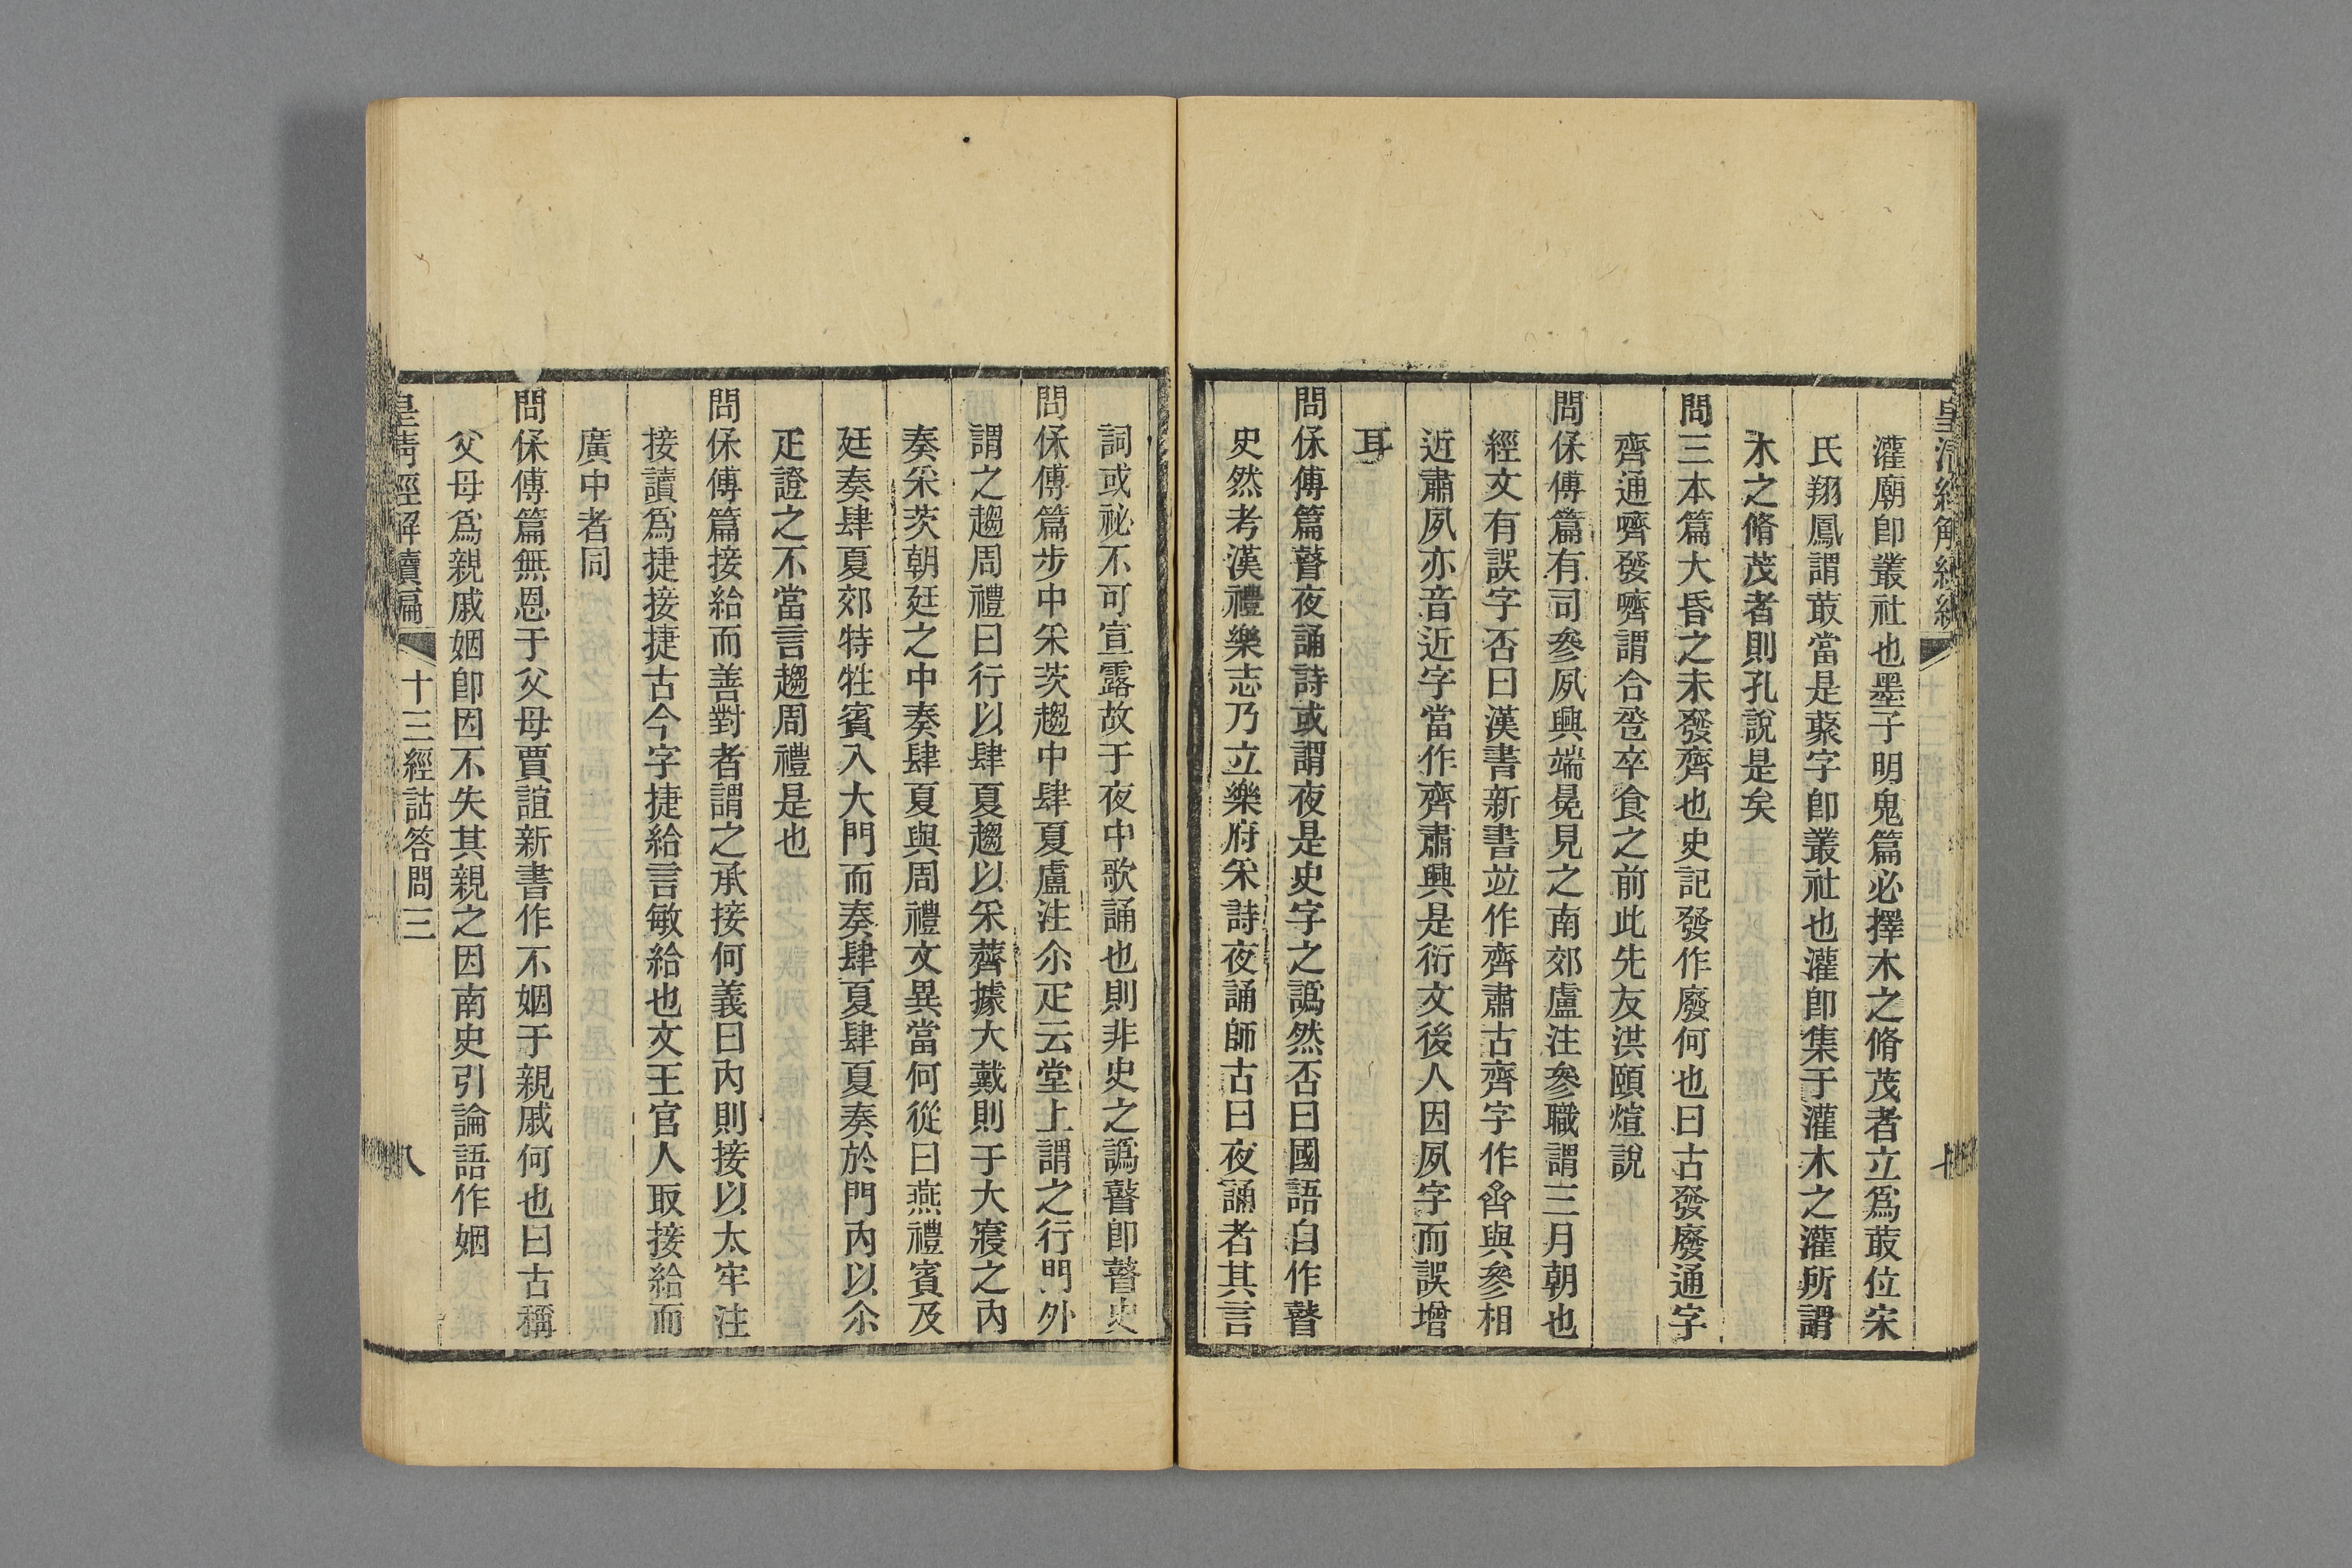 灌廟卽叢社也墨子明鬼篇必擇木之脩茂者立爲菆位宋
氏翔鳳謂菆當是藂字卽叢社也灌卽集于灌木之灌所謂
木之脩茂者則孔說是矣
問三本篇大昏之未發齊也史記發作廢何也曰古發廢通字
齊通嚌發嚌謂合卺卒食之前此先友洪頤煊說
問保傅篇有司參夙興端冕見之南郊盧注參職謂三月朝也
經文有誤字否曰漢書新書竝作齊肅古齊字作與參相
近肅夙亦音近字當作齊肅興是衍文後人因夙字而誤增
耳
問保傅篇瞽夜誦詩或謂夜是史字之譌然否曰國語自作瞽
史然考漢禮樂志乃立樂府采詩夜誦師古曰夜誦者其言
詞或祕不可宣露故于夜中歌誦也則非史之譌瞽卽瞽史
問保傅篇步中采茨趨中肆夏盧注尒疋云堂上謂之行門外
謂之趨周禮曰行以肆夏趨以采薺據大戴則于大寢之內
奏采茨朝廷之中奏肆夏與周禮文異當何從曰燕禮賓及
廷奏肆夏郊特牲賓入大門而奏肆夏肆夏奏於門內以尒
疋證之不當言趨周禮是也
問保傅篇接給而善對者謂之承接何義曰內則接以太牢注
接讀爲捷接捷古今字捷給言敏給也文王官人取接給而
廣中者同
問保傅篇無恩于父母賈誼新書作不姻于親戚何也曰古稱
父母爲親戚姻卽因不失其親之因南史引論語作姻
皇淸經解續編 十三經詁答問三 八